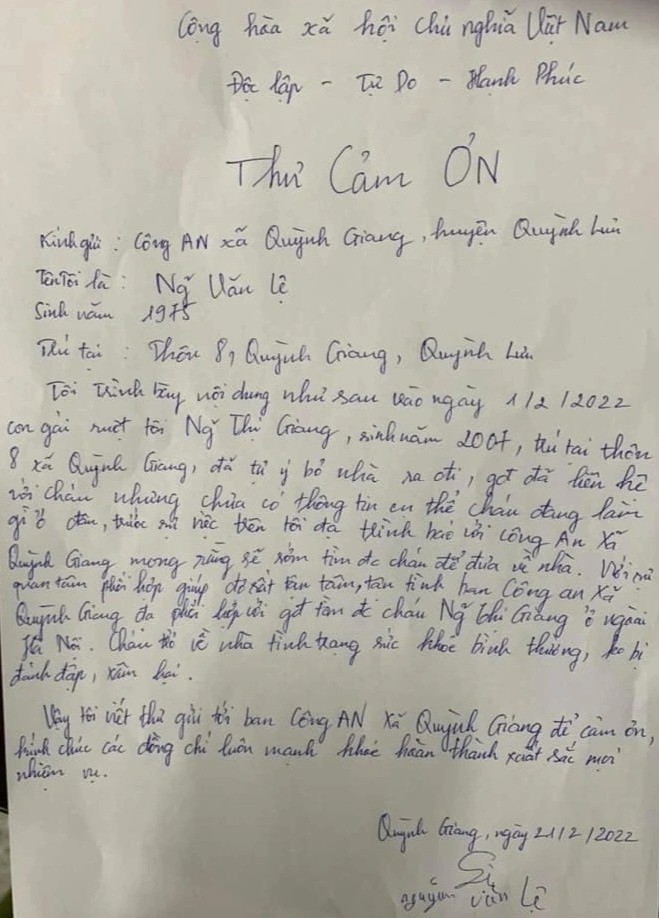 Cộng hòa xã hội chủ nghĩa Việt Nam
Độc lập - Tự Do - Hạnh Phúc
Thư Cảm ƠN
Kính gửi : Công AN xã Quỳnh Giang, huyện Quỳnh Lưu
Tên tôi là : Ng Văn Lệ
Sinh năm 1975
Trú tại : Thôn 8, Quỳnh Giang, Quỳnh Lưu
Tôi trình bày nội dung như sau vào ngày 1/2/2022
con gái ruột tôi Ng Thị Giang, sinh năm 2007, trú tại thôn
8 xã Quỳnh Giang, đã tự ý bỏ nhà ra đi, gđ đã liên hệ
với cháu nhưng chưa có thông tin cụ thể cháu đang làm
gì ở đâu, trước sự việc trên tôi đã trình báo với công An xã
Quỳnh Giang mong rằng sẽ sớm tìm đc cháu để đưa về nhà. Với sự
quan tâm phối hợp giúp đỡ rất tận tâm, tận tình ban Công an xã
Quỳnh Giang đã phối hợp với gđ tìm đc cháu Ng thị Giang ở ngoài
Hà Nội. Cháu trở về nhà tình trạng sức khỏe bình thường, ko bị
đánh đập, xâm hại.
Vậy tôi viết thư gửi tới ban Công AN xã Quỳnh Giang để cảm ơn,
kính chúc các đồng chí luôn mạnh khỏe hoàn thành xuất sắc mọi
nhiệm vụ.
Quỳnh Giang, ngày 21/2/2022
nguyễn văn Lệ